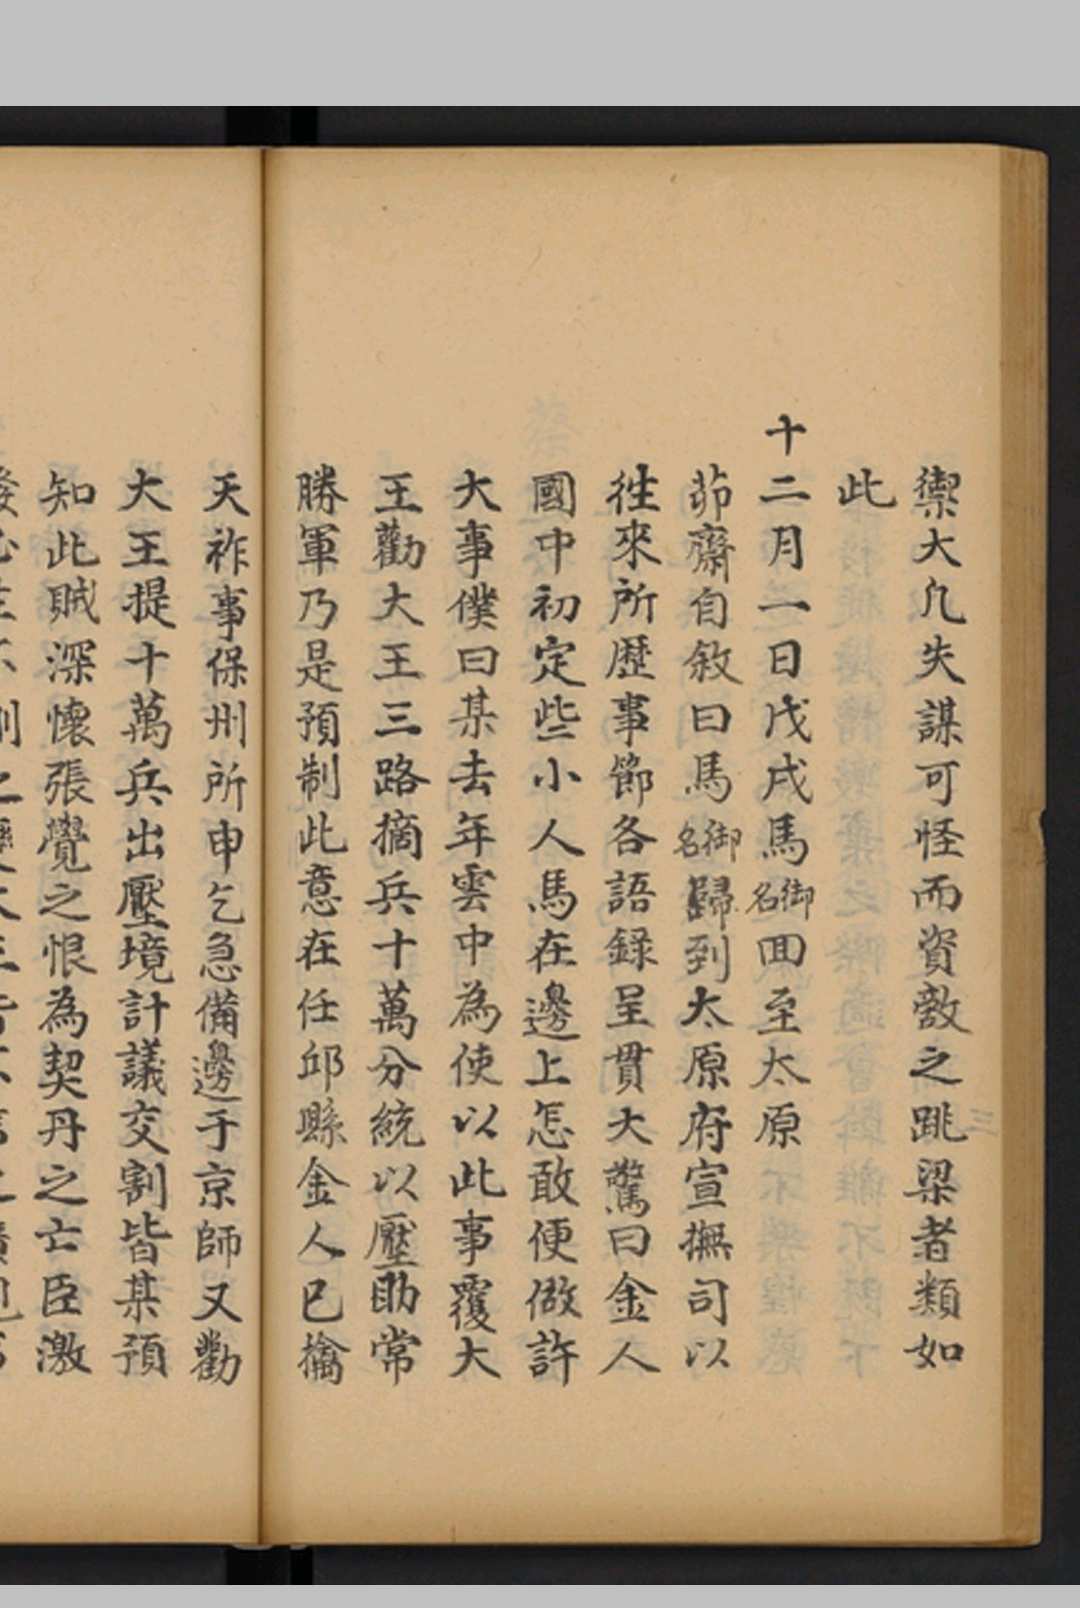 禦大凢失謀可怪而資敵之跳梁者類如
此
十二月一日戊戌馬御名回至太原
茆齋自敘曰馬御名歸到太原府宣撫司以
徃來所歷事節各語録呈貫大驚曰金人
國中初定些小人馬在邊上怎敢便做許
大事僕曰某去年雲中為使以此事覆大
王勸大王三路摘兵十萬分統以壓助常
勝軍乃是預制此意在任邱縣金人已擒
天祚事保州所申乞急備邊于京師又勸
大王提十萬兵出壓境計議交割皆某預
知此賊深懷張覺之恨為契丹之亡臣激